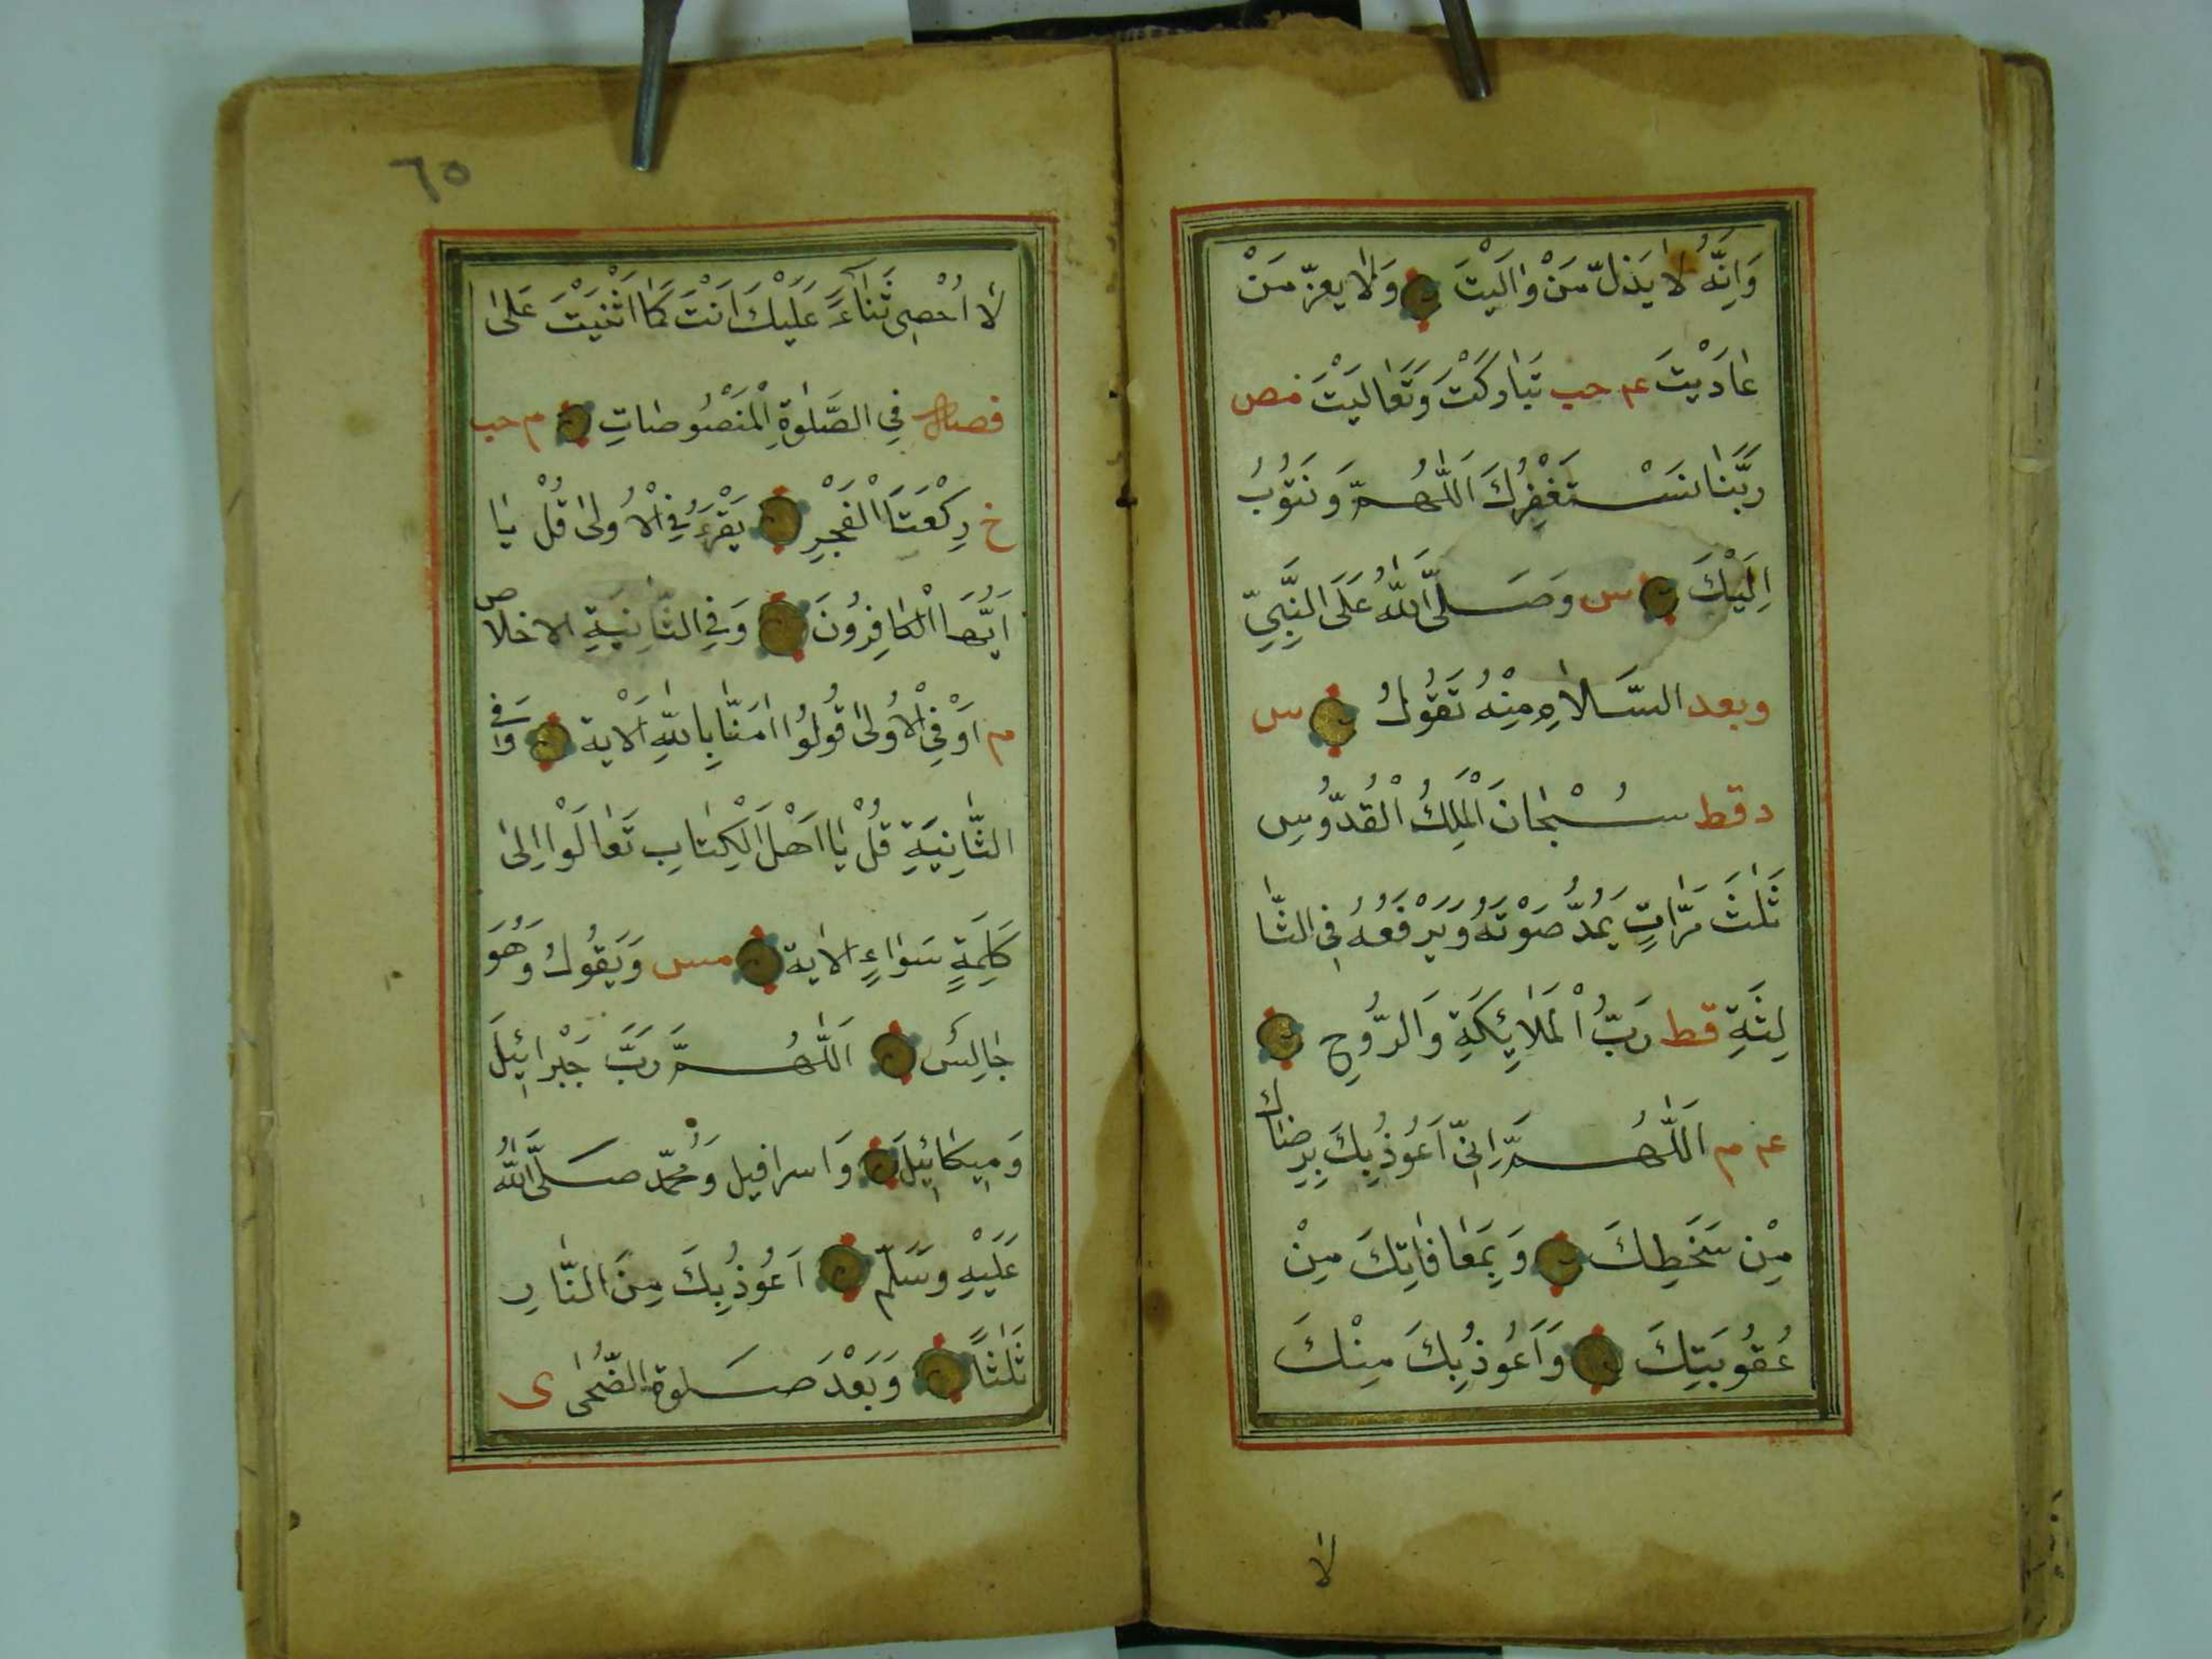 وَاِنَّهُ لَا يَذِلُّ مَنْ وَالَيْتَ وَلَا يَعِزُّ مَنْ
عَادَيْتَ عم حب تَبَارَكْتَ وَتَعَالَيْتَ مص
رَبَّنَا نَسْتَغْفِرُكَ اَللّٰهُمَّ وَنَتُوبُ
اِلَيْكَ س وَصَلَّى اللّٰهُ عَلَى النَّبِيِّ
وبعد السَّلَامِ مِنْهُ تَقُولُ س
د قط سُبْحَانَ الْمَلِكُ الْقُدُّوسِ
ثَلٰثَ مَرَّاتٍ يَمُدُّ صَوْتَهُ وَيَرْفَعُهُ فِي الثَّا
لِثَةِ قط رَبُّ الْمَلَائِكَةِ وَالرُّوحِ
عه م اَللّٰهُمَّ اِنِّي اَعُوذُ بِكَ بِرِضَاكَ
مِنْ سَخَطِكَ وَبِمُعَافَاتِكَ مِنْ
عُقُوبَتِكَ وَاَعُوذُ بِكَ مِنْكَ
لَا
٦٥
لَا اُحْصِي ثَنَاءً عَلَيْكَ اَنْتَ كَمَا اَثْنَيْتَ عَلٰى
فصل فِي الصَّلٰوةِ الْمَنْصُوصَاتِ م حب
خ رَكْعَتَا الْفَجْرِ يَقْرَءُ فِي الْاُولٰى قُلْ يَا
اَيُّهَا الْكَافِرُونَ وَفِي الثَّانِيَةِ الاخلاص
م اَوْ فِي الْاُولٰى قُولُوا اٰمَنَّا بِاللّٰهِ اَلْاٰية وَفِي
الثَّانِيَةِ قُلْ يَا اَهْلَ الْكِتَابِ تَعَالَوْا اِلٰى
كَلِمَةٍ سَوَاءٍ الاٰية مس وَيَقُولُ وَهُوَ
جَالِسٌ اَللّٰهُمَّ رَبَّ جَبْرَائِيلَ
وَمِيكَائِيلَ وَاسرافيل وَمُحَمَّدٍ صَلَّى اللّٰهُ
عَلَيْهِ وَسَلَّمَ اَعُوذُ بِكَ مِنَ النَّارِ
ثَلٰثًا وَبَعْدَ صَلٰوةِ الضُّحٰى ى